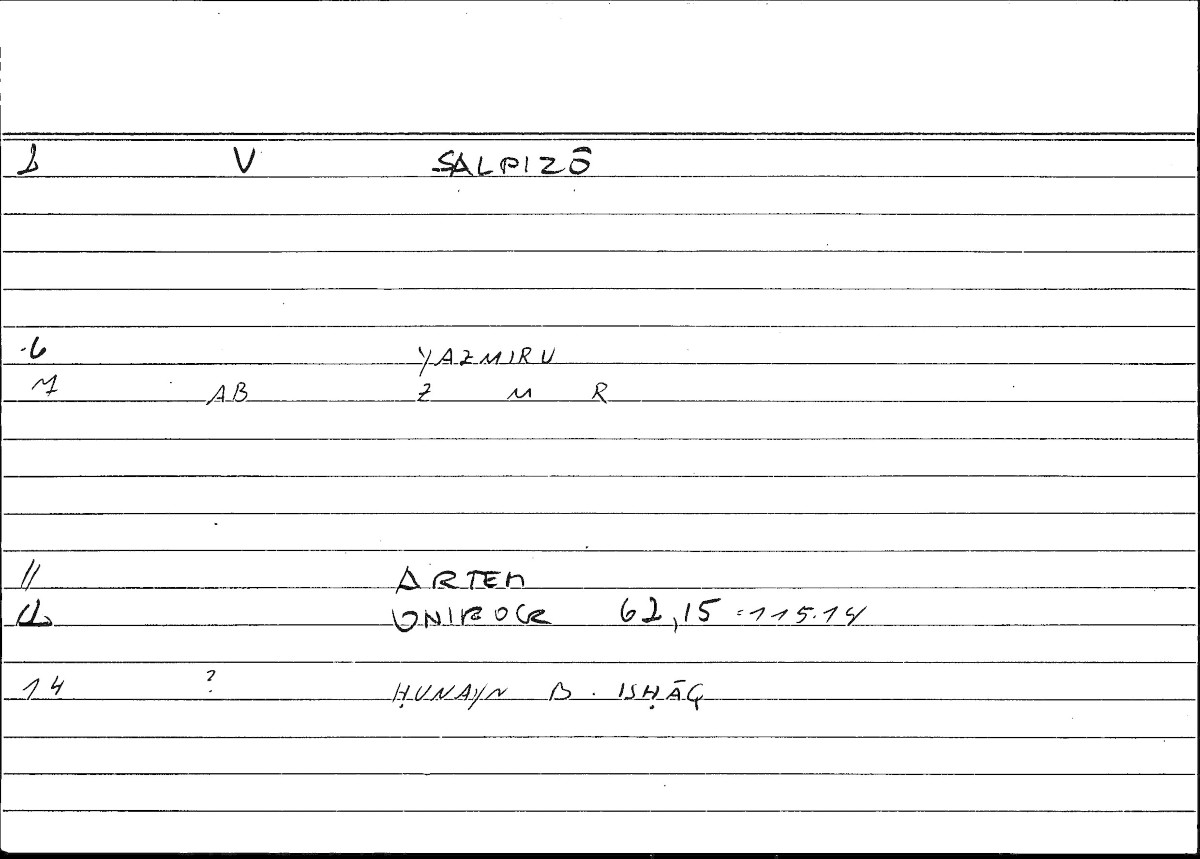 1 V SALPIZŌ
6 YAZMIRU
7 AB Z M R
11 ARTEM
12 ONIROCR 62,15 = 115.14
14 ? ḤUNAYN B. ISḤĀQ